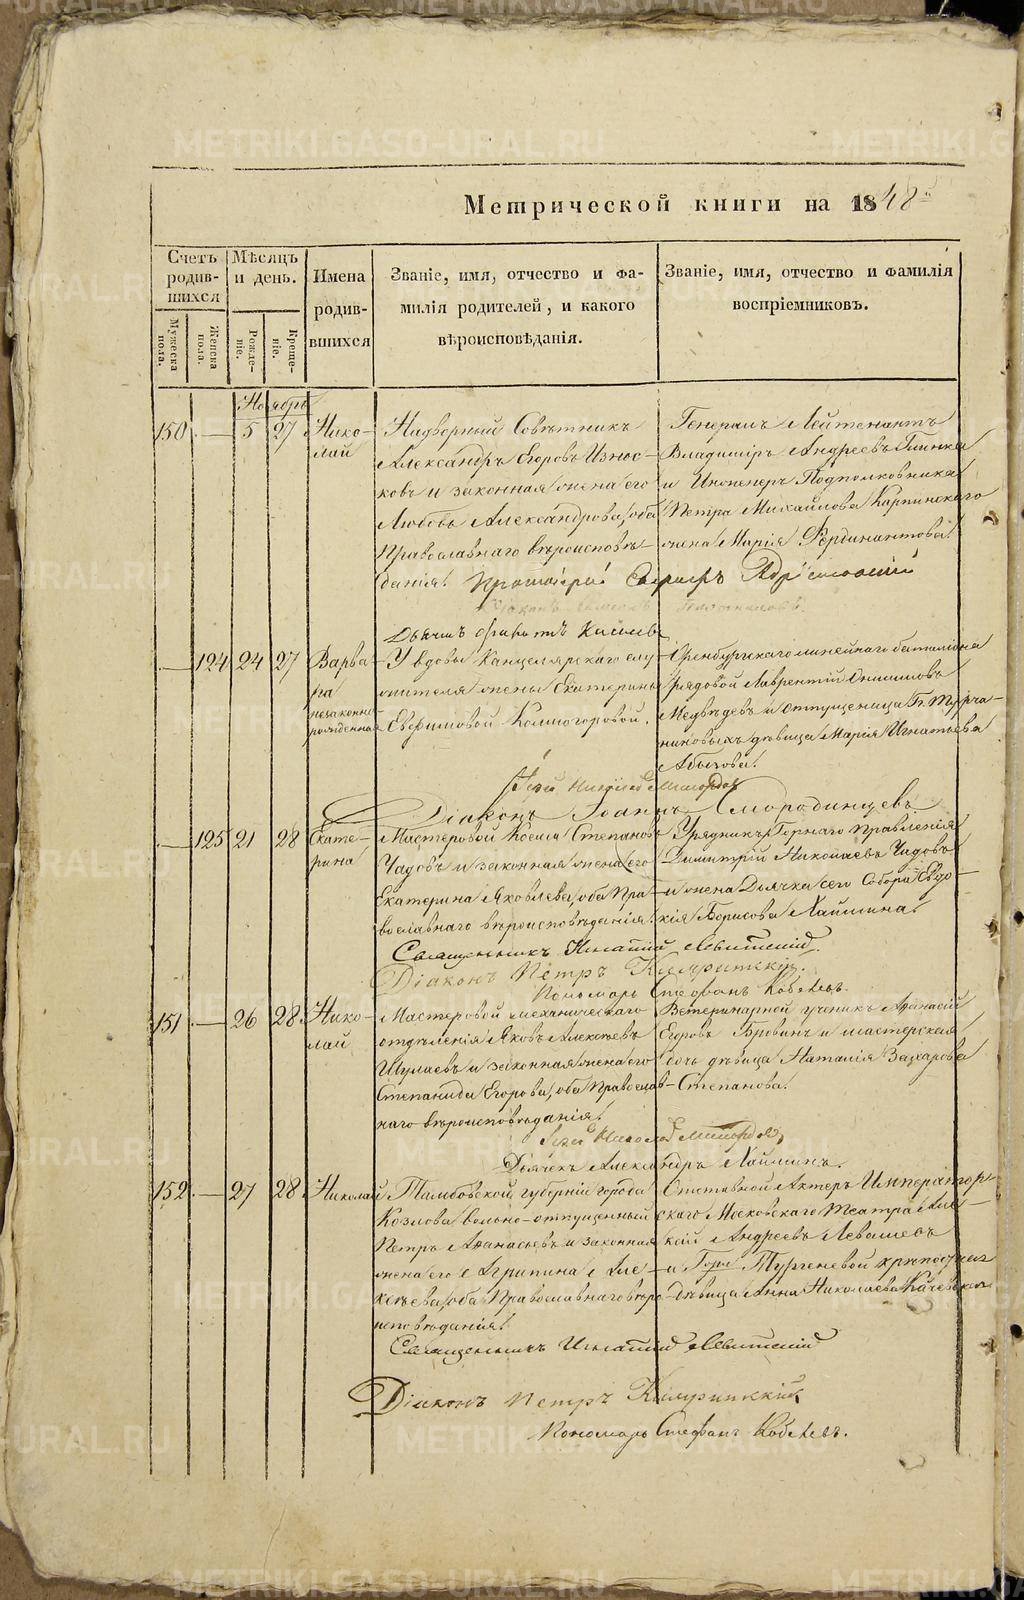 Метрической книги на 1848й
Счетъ родив-шихся
Мѣсяцъ и день.
Имена родив-вшихся
Званіе, имя, отчество и фа-
милія родителей, и какого
вѣроисповѣданія.
Званіе, имя, отчество и фамилія
воспріемниковъ.
Мужеска пола.
Женска пола.
Рожде-ніе.
Креще-ніе.
Ноябрь
150 — 5 27 Нико-
лай
Надворный Совѣтникъ
Александръ Егоровъ Износ-
ковъ и законная жена его
Любовь Александрова, оба
Православнаго вѣроисповѣ-
данія.
Генералъ Лейтенантъ
Владиміръ Андреевъ Глинка
и Инженеръ Подполковника
Петра Михайлова Карпинскаго
жена Марія Фердинантова.
Протоіерей
— 124 24 27 Варва-
ра
незаконно-
рожденная
У вдовы Канцелярскаго слу-
жителя жены Екатерины
Евфимовой Колмогоровой.
Оренбургскаго линейнаго баталіона
рядовой Лаврентій Онисимовъ
Медвѣдевъ и отпущеница Гг. Турча-
ниновыхъ дѣвица Марія Игнатьева
Абызова.
Іерей Николай
Діаконъ Іоаннъ Смородинцевъ
— 125 21 28 Екате-
рина
Мастеровой Косма Степановъ
Чадовъ и законная жена его
Екатерина Яковлева, оба Пра-
вославнаго вѣроисповѣданія.
Урядникъ Горнаго Правленія
Димитрій Николаевъ Чадовъ
и жена Дьячка сего Собора Евдо-
кія Борисова Хаймина.
Священникъ Игнатій Левитскій.
Діаконъ Петръ
Пономарь Стефанъ Кобелевъ.
151 — 26 28 Нико-
лай
Мастеровой механическаго
отдѣленія Яковъ Алексѣевъ
Шулаевъ и законная жена его
Степанида Егорова, оба Православ-
наго вѣроисповѣданія.
Ветеринарной ученикъ Афанасій
Егоровъ Бровинъ и мастерская
дочь дѣвица Наталія Захарова
Степанова.
Іерей Николай
Дьячекъ Александръ Хайминъ.
152 — 27 28 Николай
Тамбовской губерніи города
Козлова вольно-отпущенный
Петръ Афанасьевъ и законная
жена его Агрипина Але-
ксѣева, оба Православнаго вѣро-
исповѣданія.
Отставной Актеръ Император-
скаго Московскаго Театра Але-
ксій Андреевъ Левашевъ
и Гпжи Тургеневой крѣпостная
дѣвица Анна Николаева
Священникъ Игнатій Левитскій
Діаконъ Петръ
Пономарь Стефанъ Кобелевъ.
METRIKI.GASO-URAL.RU